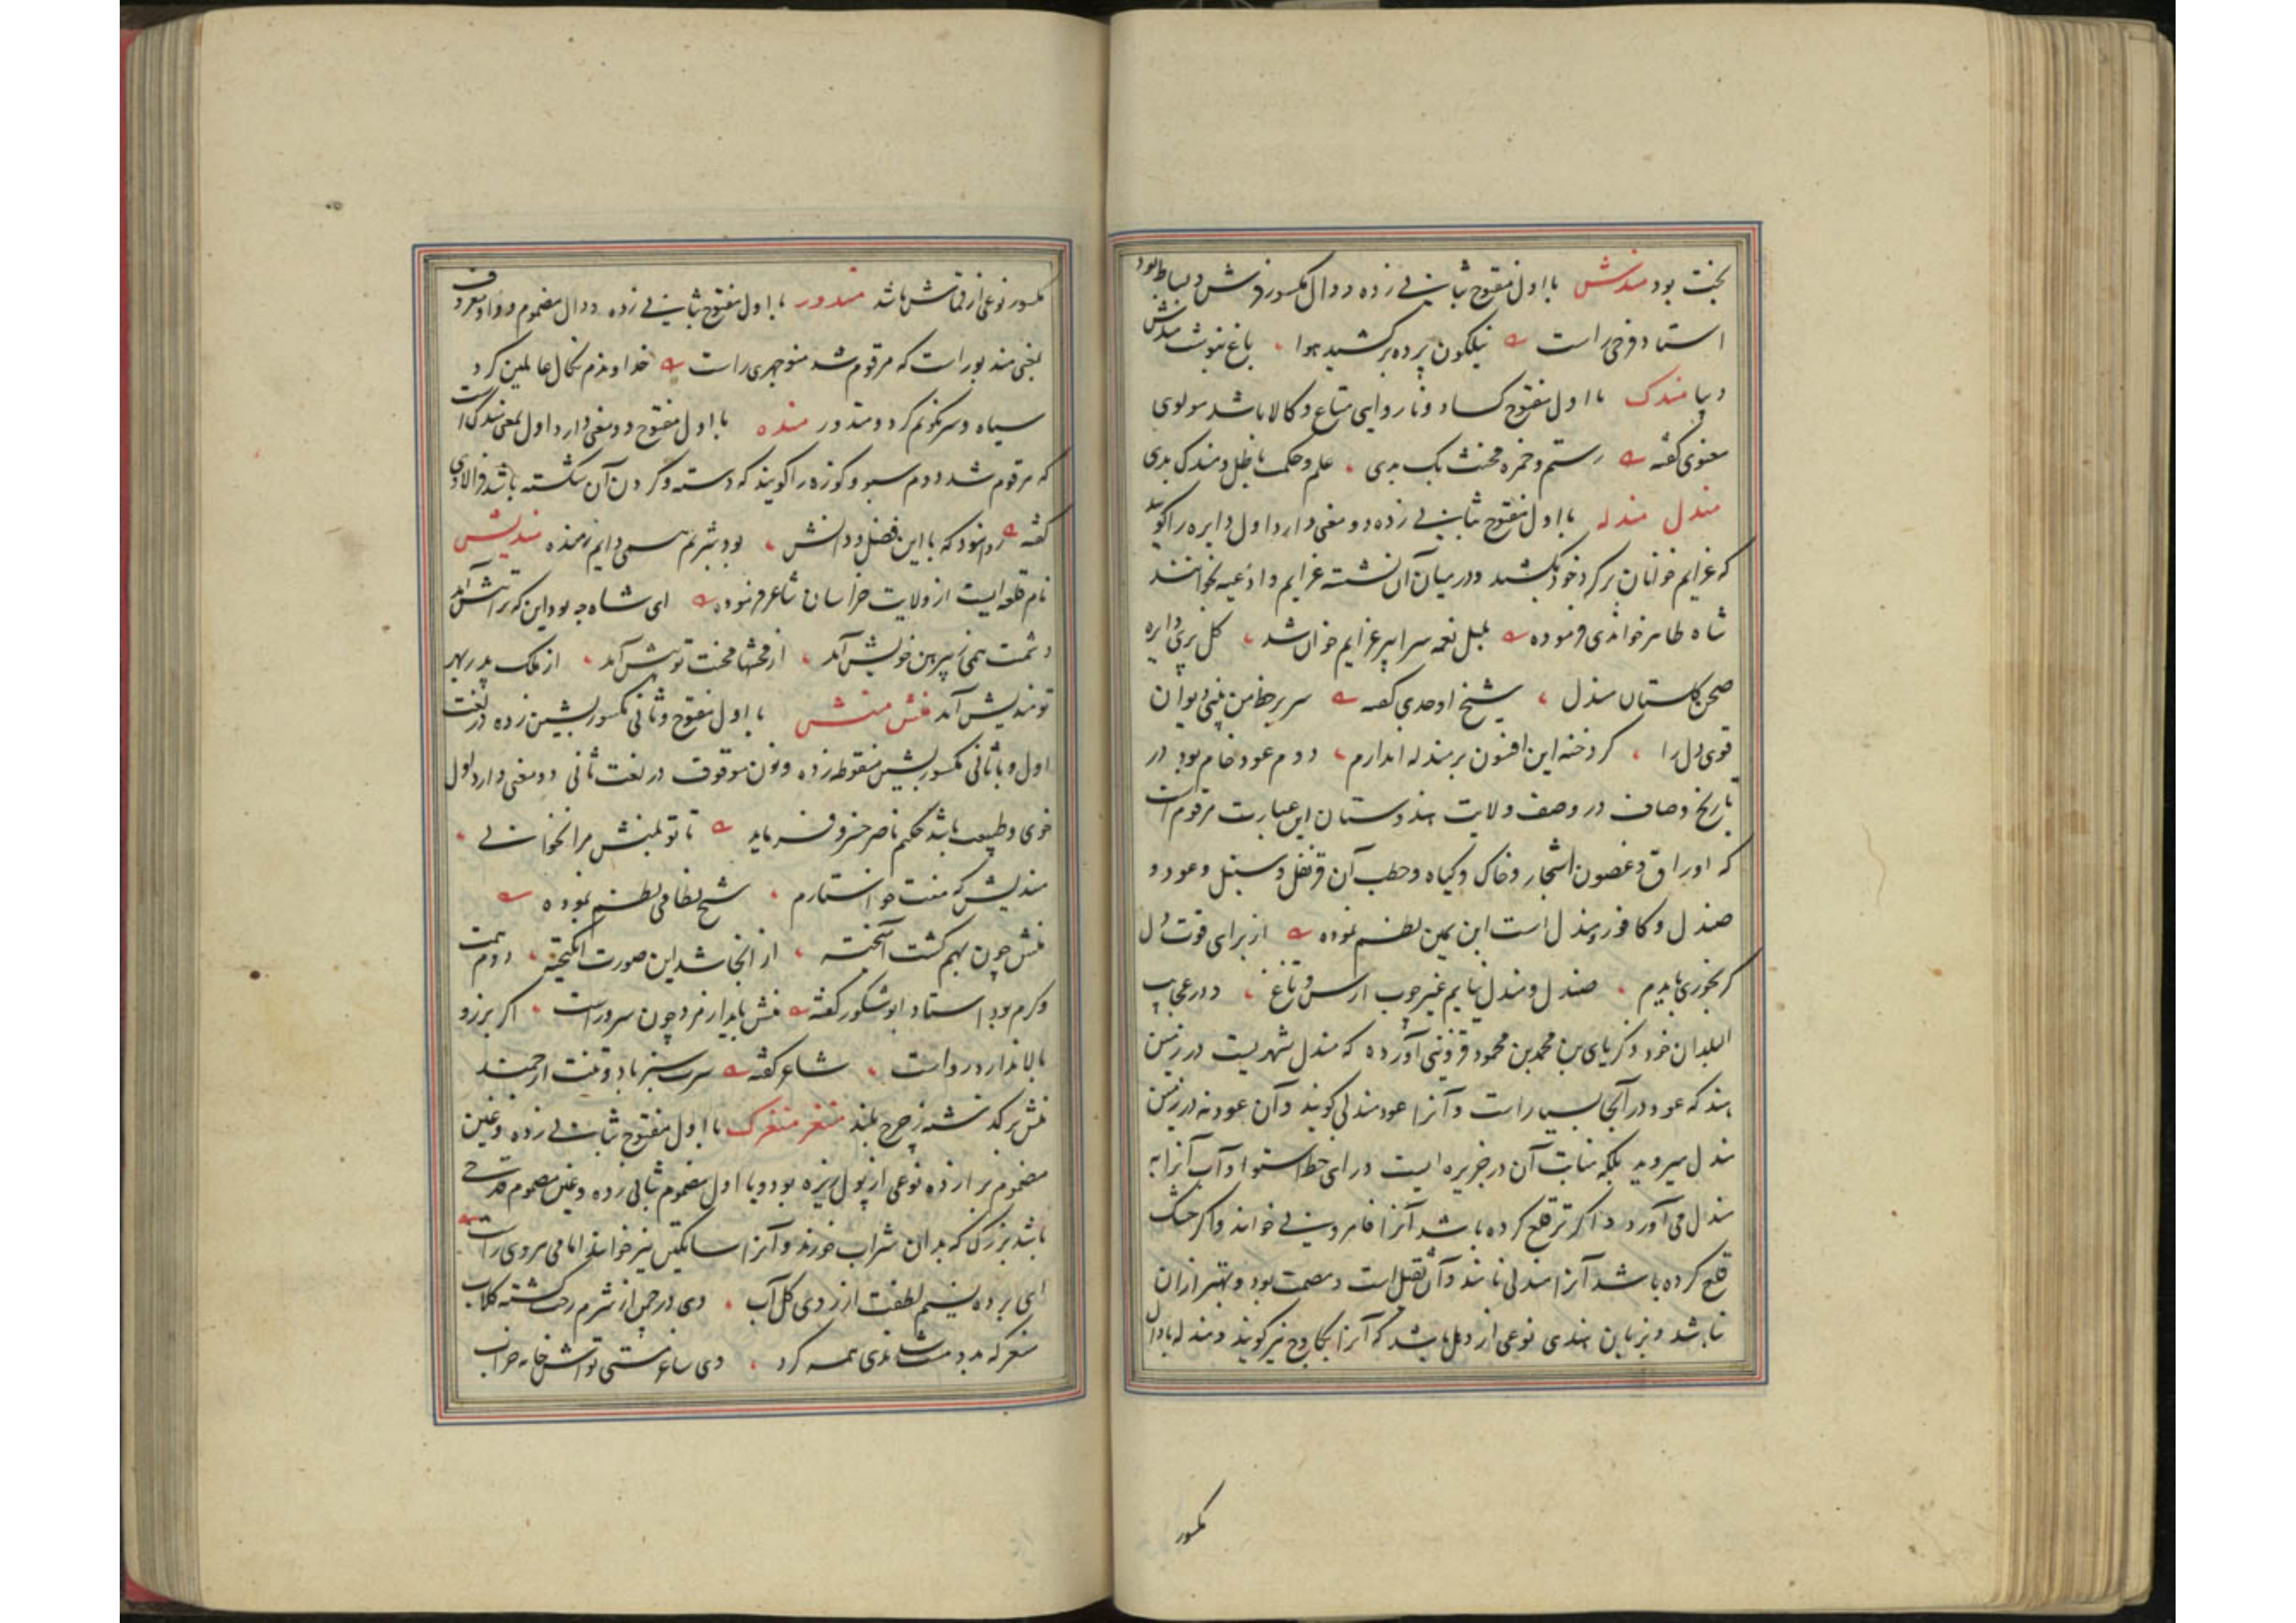 بخت بود مندش با اول مفتوح بثانی زده و دال مکسور فرش و بساط بود
استاد فرخی راست نیلگون پرده برکشید هوا باغ بنوشت مندش
دیبا مندک با اول مفتوح کساد و ناروایی متاع و کالا باشد مولوی
معنوی گفته رستم و حمزه مخنث یک بدی علم و حکمت باطل و مندک بدی
مندل مندله با اول مفتوح بثانی زده دو معنی دارد اول دایره را گویند
که عزایم خوانان بر گرد خود بکشند و در میان آن نشسته عزایم و ادعیه بخوانند
شاه طاهر خواندی فرموده بلبل نغمه سرا پیر عزایم خوان شد گل پری دایره
صحن گلستان مندل شیخ اوحدی گفته سر بر خط من بنی دیوان
قوی دل را کر دخنه این افسون بر مندله اندازم دوم عود خام بود در
تاریخ وصاف در وصف ولایت هندوستان این عبارت مرقوم است
که اوراق و غصون اشجار و خاک و گیاه و حطب آن قرنفل و سنبل و عود و
صندل و کافور و مندل است ابن یمین نظم نموده از برای قوت دل
گر بخوری بایدم صندل و مندل نیابم غیر چوب ارس و تاغ و در عجایب
البلدان خود زکریای بن محمد بن محمود قزوینی آورده که مندل شهریست در زمین
هند که عود در آنجا بسیار است و آنرا عود مندلی گویند و آن عود نه در زمین
مندل میروید بلکه منابت آن در جزیره ایست ورای خط استوا و آب آنرا به
مندل می آورد و اگر تر قلع کرده باشد آنرا قامرونی خوانند و اگر خشک
قلع کرده باشد آنرا مندلی نامند و آن ثقیل است و مصمت بود و بهتر از آن
نباشد و بزبان هندی نوعی از دهل باشد که آنرا پکاوج نیز گویند و مندله با دال
مکسور
مکسور نوعی از قماش باشد مندور با اول مفتوح بثانی زده و دال مضموم و واو معروف
بمعنی مندبور است که مرقوم شد منوچهری راست خداوندم نکال عالمین کرد
سیاه و سرنگونم کرد و مندور منده با اول مفتوح دو معنی دارد اول بمعنی مندک است
که مرقوم شد دوم سبو و کوزه را گویند که دسته و گردن آن شکسته باشد
گفته روا نبود که با این فضل و دانش بود شربم همی دایم ز منده مندیش
نام قلعه ایست از ولایت خراسان شاعر فرموده ای شاه چه بود این که ترا پیش آمد
دشمنت همی ز پیرهن خویش آمد از محنتها محنت تو بیش آمد از ملک پدر بهر
تو مندیش آمد منش منشن با اول مفتوح و ثانی مکسور بشین زده در لغت
اول و با ثانی مکسور بشین منقوطه زده و نون موقوف در لغت ثانی دو معنی دارد اول
خوی و طبیعت باشد حکیم ناصر خسرو فرماید تا تو بمنش مرا نخوانی
مندیش که منت خواستارم شیخ نظامی نظم نموده
منش چون بهم گشت آمیخته از آنجا شد این صورت انگیخته دوم همت
و کرم بود استاد ابوشکور گفته منش باید از مرد چون سرو راست اگر برز و
بالا ندارد رواست شاعر گفته سرت سبز باد و تنت ارجمند
منش برگذشته ز چرخ بلند منغر منغرک با اول مفتوح بثانی زده و غین
مضموم برا زده نوعی از پول ریزه بود و با اول مضموم ثانی زده و غین مضموم قدحی
باشد بزرگ که بدان شراب خورند و آنرا ساتکین نیز خوانند امامی هروی راست
ای برده نسیم لطفت از روی گل آب دی در چمن از شرم رخت گشته گلاب